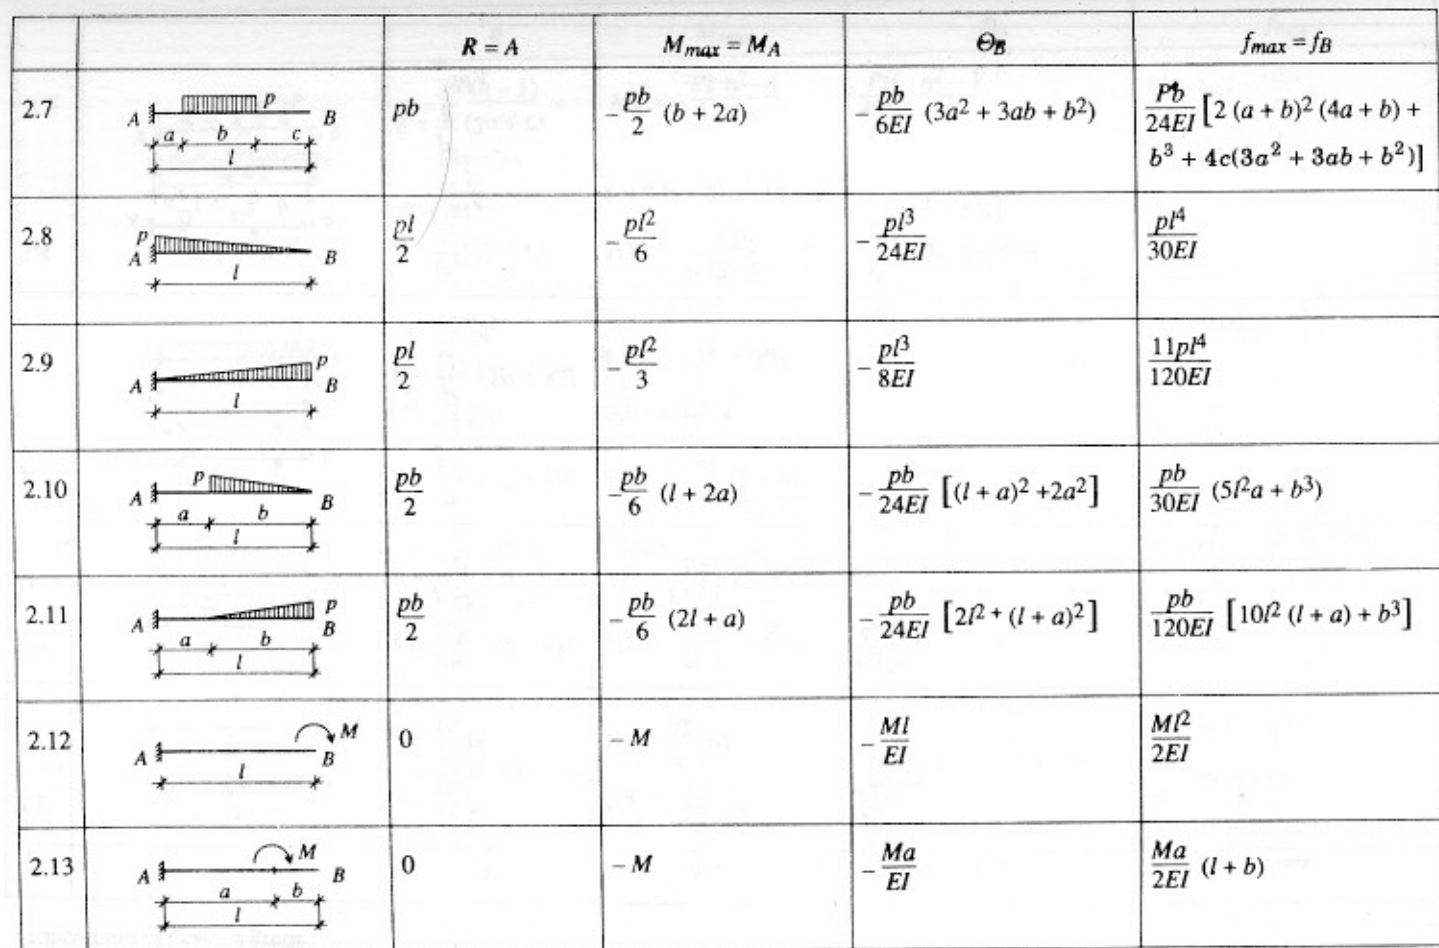 R = A M_max = M_A Θ_B f_max = f_B
2.7 A p B pb -pb/2 (b + 2a) -pb/6EI (3a² + 3ab + b²) pb/24EI [2 (a + b)² (4a + b) +
a b c b³ + 4c(3a² + 3ab + b²)]
l
2.8 p A B pl/2 -pl²/6 -pl³/24EI pl⁴/30EI
l
2.9 A p B pl/2 -pl²/3 -pl³/8EI 11pl⁴/120EI
l
2.10 A p B pb/2 -pb/6 (l + 2a) -pb/24EI [(l + a)² +2a²] pb/30EI (5l²a + b³)
a b
l
2.11 A p B pb/2 -pb/6 (2l + a) -pb/24EI [2l² + (l + a)²] pb/120EI [10l² (l + a) + b³]
a b
l
2.12 A M B 0 - M -Ml/EI Ml²/2EI
l
2.13 A M B 0 - M -Ma/EI Ma/2EI (l + b)
a b
l